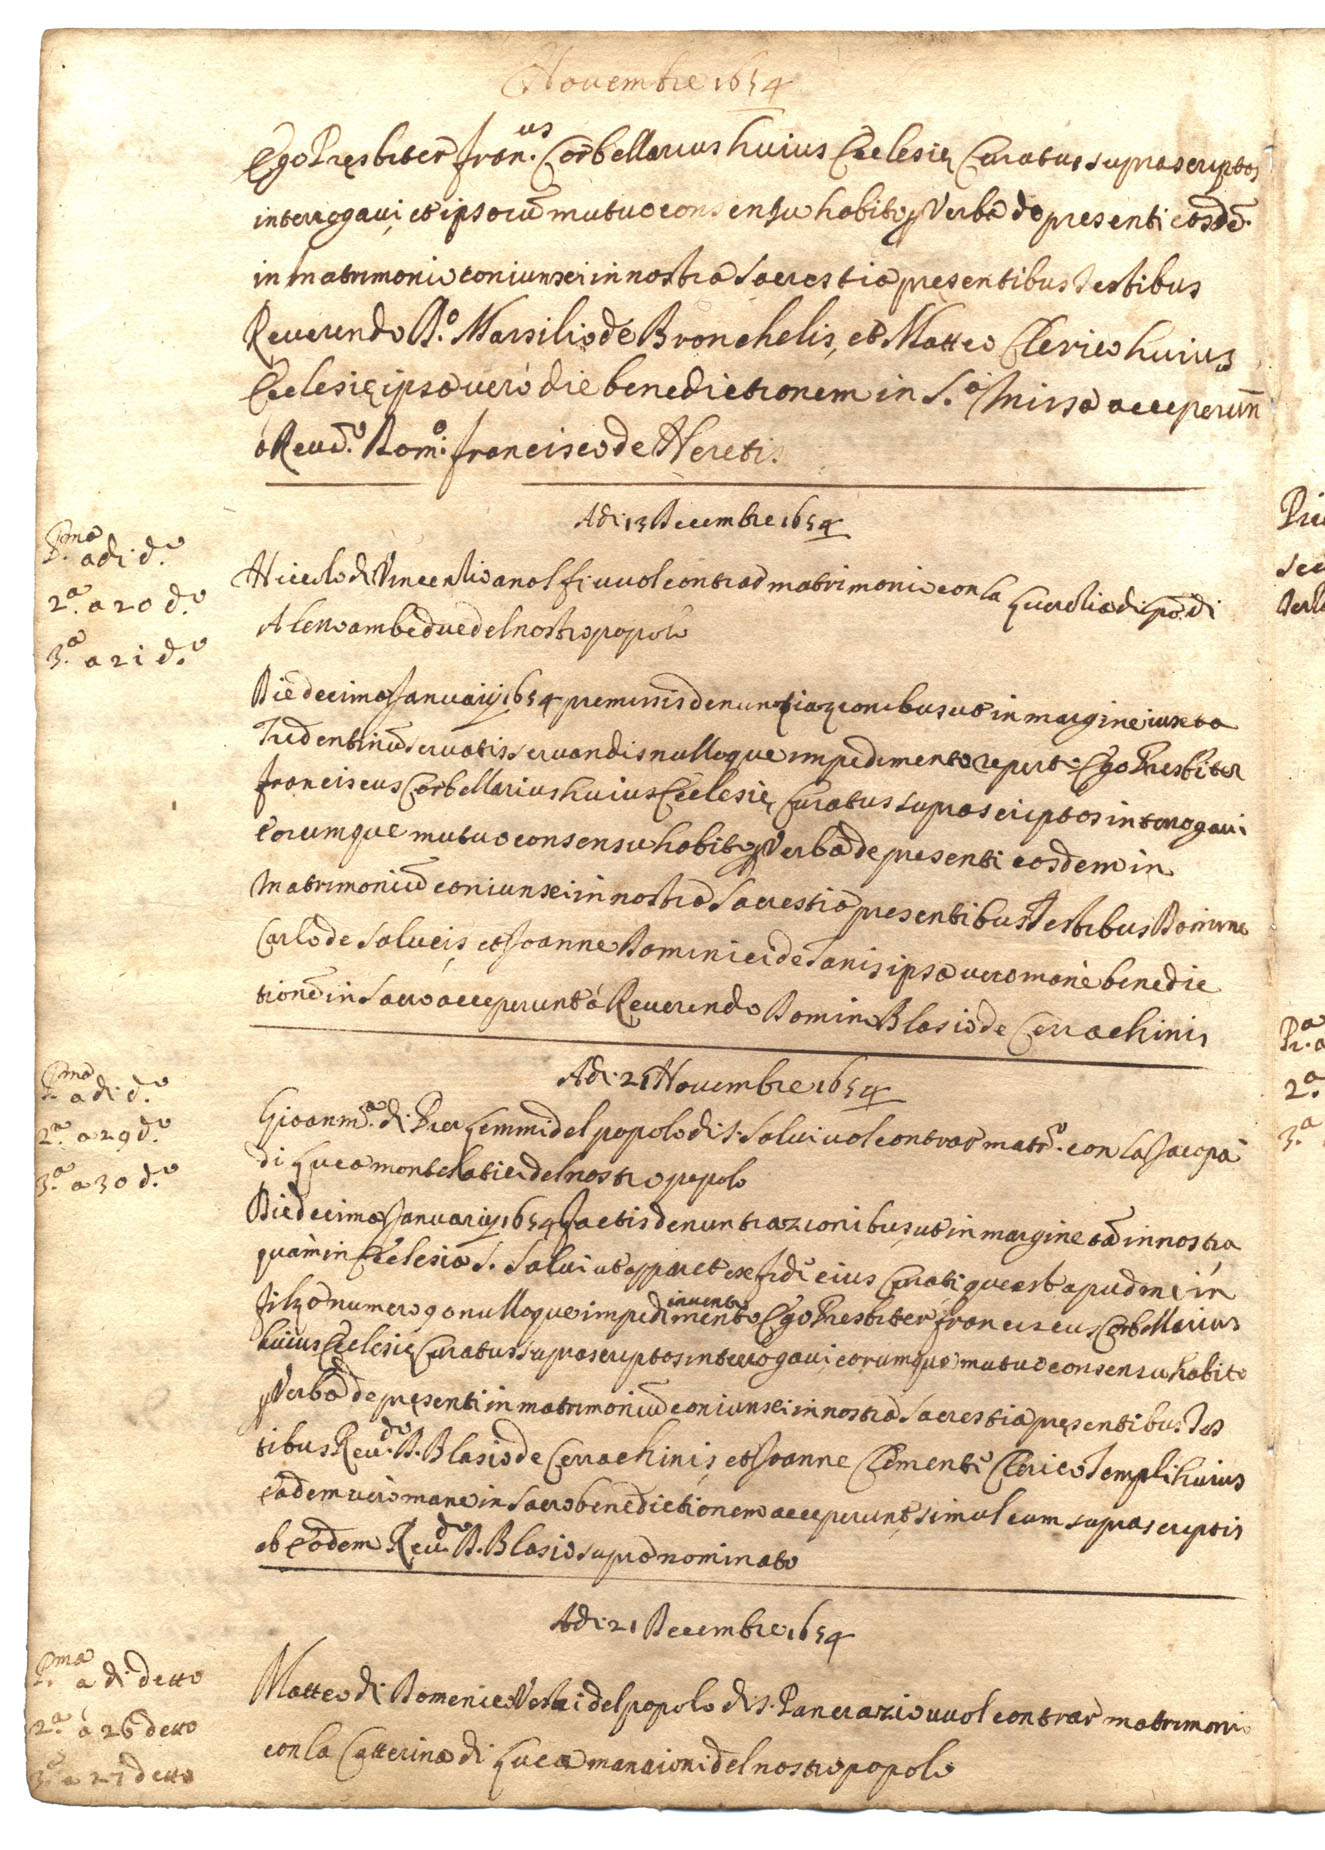 Novembre 1654
Ego Pręsbiter Fran.us Corbellarius huius Ecclesię Curatus suprascriptos
interrogavi et ipsorū mutuo consensu habito ꝑ Verba de presenti eosdē
in matrimonio coniunxi in nostra Sacrestia pręsentibus Testibus
Reverendo D.o Marsilio de Bronchelis, et Matteo Clerico huius
Ecclesię ipsa verò die benedictionem in S.a Missa acceperūn
à Reud.o Dom.o Francisco de Neretis
Adi: 13 Decembre 1654
P.ma adi d.o
2.a a 20 d.o
3.a a 21 d.o
Niccolo di Vincentio anolfi vuol contrar matrimonio con la Lucretia di Po: di
Alesso ambedue del nostro popolo
Die decima Januarij 1654 premissis denuntiazionibus ut in margine iuxta
Tridentinū servatis servandis nulloque impedimento reperto Ego Presbiter
Franciscus Corbellarius huius Ecclesię Curatus suprascriptos interrogavi
eorumque mutuo consensu habito ꝑ Verba de presenti eosdem in
Matrimoniū coniunxi in nostra Sacrestia presentibus Testibus Domino
Carlo de Salucis, et Joanne Dominici de Sanis ipsa vero mane benedic
tionē in Sacro acceperunt à Reverendo Domino Blasio de Cerrachinis
Adi: 21 Novembre 1654
P.ma adi d.o
2.a a 29 d.o
3.a a 30 d.o
Giovanm.a di Pier Lemmi del popolo di S. Salvi vuol contrar matr.o con la Jacopa
di Luca montelatici del nostro popolo
Die decima Januarij 1654 factis denuntiazionibus, ut in margine tā in nostra
quàm in Ecclesia S. Salvi ut apparet ex fide eius Curati que est apud me in
filza numero 90 nulloque impedimento invento Ego Presbiter Franciscus Corbellarius
huius Ecclesię Curatus suprascriptos interrogavi eorumque mutuo consensu habito
ꝑ Verba de pręsenti in matrimoniū coniunxi in nostra Sacrestia pręsentibus Tes
tibus Reu.do D. Blasio de Cerrachinis, et Joanne Clementi Clerico Templi huius
eadem vero mane in Sacro benedictionem acceperunt simul cum suprascriptis
ab eodem Reu.do D. Blasio supra nominato
Adi: 21 Decembre 1654
P.ma a di detto
2.a a 26 detto
3.a a 27 detto
Matteo di Domenico del popolo di S. Pancrazio vuol contrar matrimonio
con la Catterina di Luca manaioni del nostro popolo